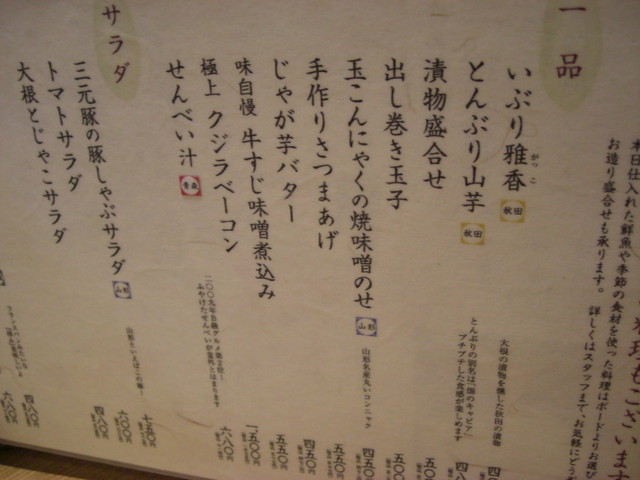 本日仕入れた鮮魚や季節の食材を使った料理はボードよりお選び
お造り盛合せも承ります。 詳しくはスタッフまで、お気軽にどう
一品
いぶり雅香 秋田
がっこ
大根の漬物を燻した秋田の漬物
とんぶり山芋 秋田
とんぶりの別名は、「畑のキャビア」
プチプチした食感が楽しめます
漬物盛合せ
出し巻き玉子
玉こんにゃくの焼味噌のせ 山形
山形名産丸いコンニャク
手作りさつまあげ
じゃが芋バター
味自慢 牛すじ味噌煮込み
極上 クジラベーコン
せんべい汁 青森
二〇〇九年B級グルメ第2位!
ふやけたせんべいが意外とはまります
サラダ
三元豚の豚しゃぶサラダ 山形
山形といえばこの豚!
トマトサラダ
大根とじゃこサラダ
五〇〇円
五五〇円
四五〇円
五五〇円
一、五〇〇円
六八〇円
七五〇円
六〇〇円
四八〇円